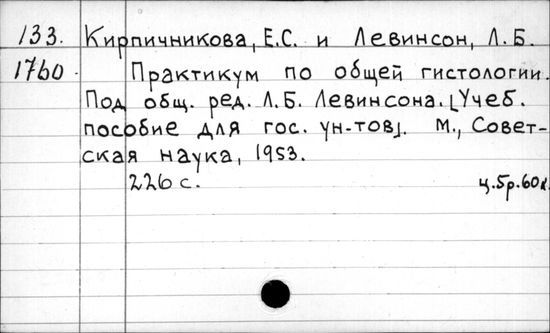 133. Кирпичникова, Е.С. и Левинсон, Л.Б.
1760. Практикум по общей гистологии.
Под общ. ред. Л.Б. Левинсона. [Учеб.
пособие для гос. ун-тов]. М., Совет-
ская наука, 1953.
226 с. ц.5р.60к.